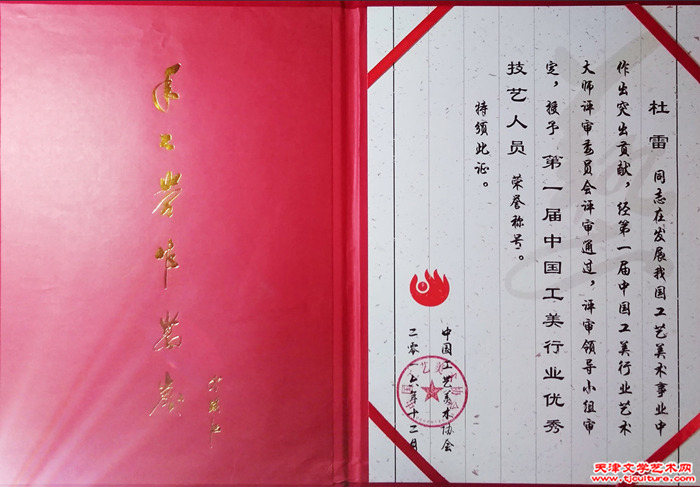 杜雷 同志在发展我国工艺美术事业中
作出突出贡献，经第一届中国工美行业艺术
大师评审委员会评审通过，评审领导小组审
定，授予 第一届中国工美行业优秀
技艺人员 荣誉称号。
特颁此证。
中国工艺美术协会
二零一六年十二月
天津文学艺术网
www.tjculture.com